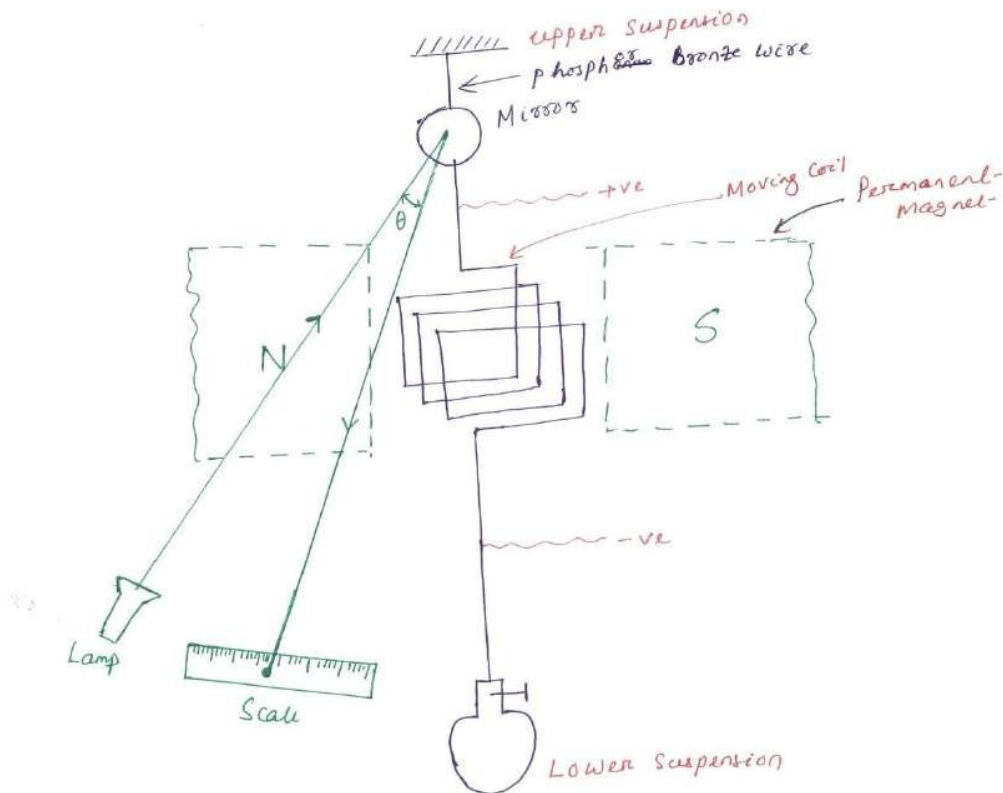 upper suspension
phosphor Bronze wire
Mirror
+ve
Moving Coil
Permanent-
magnet-
θ
N
S
-ve
Lamp
Scale
Lower Suspension